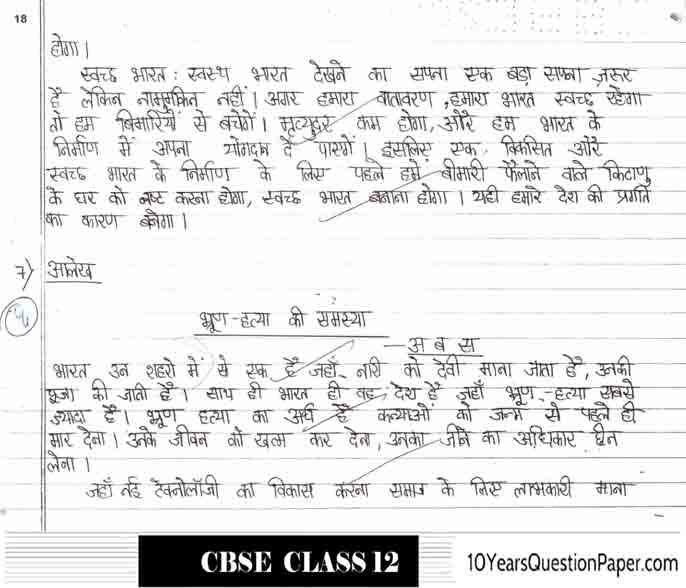 18
होगा।
स्वच्छ भारत : स्वस्थ भारत देखने का सपना एक बड़ा सपना ज़रूर
है लेकिन नामुमकिन नहीं। अगर हमारा वातावरण, हमारा भारत स्वच्छ रहेगा
तो हम बिमारियों से बचेगें। मृत्युदर कम होगा, और हम भारत के
निर्माण में अपना योगदान दे पाएगें। इसलिए एक विकसित और
स्वच्छ भारत के निर्माण के लिए पहले हमें बीमारी फैलाने वाले किटाणु
के घर को नष्ट करना होगा, स्वच्छ भारत बनाना होगा। यही हमारे देश की प्रगति
का कारण बनेगा।
7) आलेख
भ्रूण-हत्या की समस्या
—अ ब स
भारत उन शहरो में से एक है जहाँ नारी को देवी माना जाता है, उनकी
पूजा की जाती है। साथ ही भारत ही वह देश है जहाँ भ्रूण-हत्या सबसे
ज़्यादा है। भ्रूण हत्या का अर्थ है कन्याओ को जन्म से पहले ही
मार देना। उनके जीवन को खत्म कर देना, उनका जीने का अधिकार छीन
लेना।
जहाँ नई टेक्नोलॉजी का विकास करना समाज के लिए लाभकारी माना
CBSE CLASS 12
10YearsQuestionPaper.com